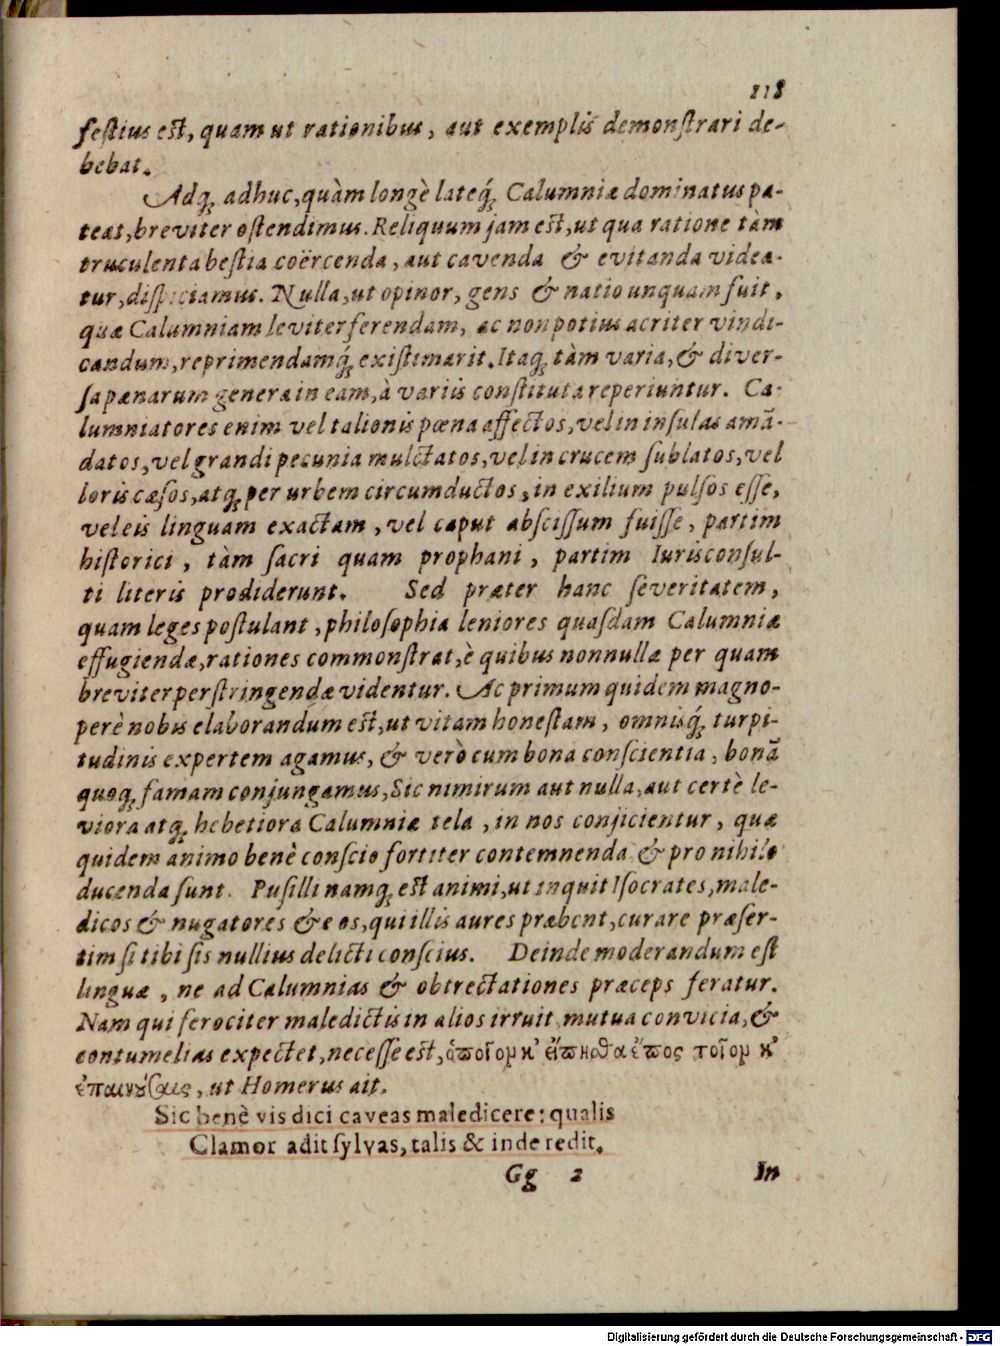 118
festius est, quam ut rationibus, aut exemplis demonſtrari de-
bebat.
Adq́; adhuc, quàm longè lateq́; Calumniæ dominatus pa-
teat, breviter oſtendimus. Reliquum jam eſt, ut qua ratione tàm
truculenta beſtia coërcenda, aut cavenda & evitanda videa-
tur, diſpiciamus. Nulla, ut opinor, gens & natio unquam fuit,
quæ Calumniam leviter ferendam, ac non potius acriter vindi-
candum, reprimendamq́; exiſtimarit. Itaq; tàm varia, & diver-
ſa pænarum genera in eam, à variis conſtituta reperiuntur. Ca-
lumniatores enim vel talionis pœna affectos, vel in inſulas amã-
datos, vel grandi pecunia mulctatos, vel in crucem ſublatos, vel
loris cæſos, atq; per urbem circumductos, in exilium pulſos eſſe,
vel eis linguam exactam, vel caput abſciſſum fuiſſe, partim
hiſtorici, tàm ſacri quam prophani, partim Iurisconſul-
ti literis prodiderunt. Sed præter hanc ſeveritatem,
quam leges poſtulant, philoſophia leniores quaſdam Calumniæ
effugiendæ, rationes commonſtrat, è quibus nonnullæ per quam
breviter perſtringendæ videntur. Ac primum quidem magno-
perè nobis elaborandum eſt, ut vitam honeſtam, omnisq́; turpi-
tudinis expertem agamus, & verò cum bona conſcientia, bonã
quoq; famam conjungamus, Sic nimirum aut nulla, aut certè le-
viora atq; hebetiora Calumniæ tela, in nos conjicientur, quæ
quidem animo benè conſcio fortiter contemnenda & pro nihilo
ducenda ſunt. Puſilli namq; eſt animi, ut inquit Iſocrates, male-
dicos & nugatores & eos, qui illis aures præbent, curare præſer-
tim ſi tibi ſis nullius delicti conſcius. Deinde moderandum eſt
linguæ, ne ad Calumnias & obtrectationes præceps feratur.
Nam qui ferociter maledictis in alios irruit mutua convicia, &
contumelias expectet, neceſſe eſt, ὁποῖομ κ' εἴπηθα ἔπος τοῖομ κ'
ἐπακούσαις, ut Homerus ait.
Sic benè vis dici caveas maledicere: qualis
Clamor adit ſylvas, talis & inde redit.
Gg 2 In
Digitalisierung gefördert durch die Deutsche Forschungsgemeinschaft - DFG